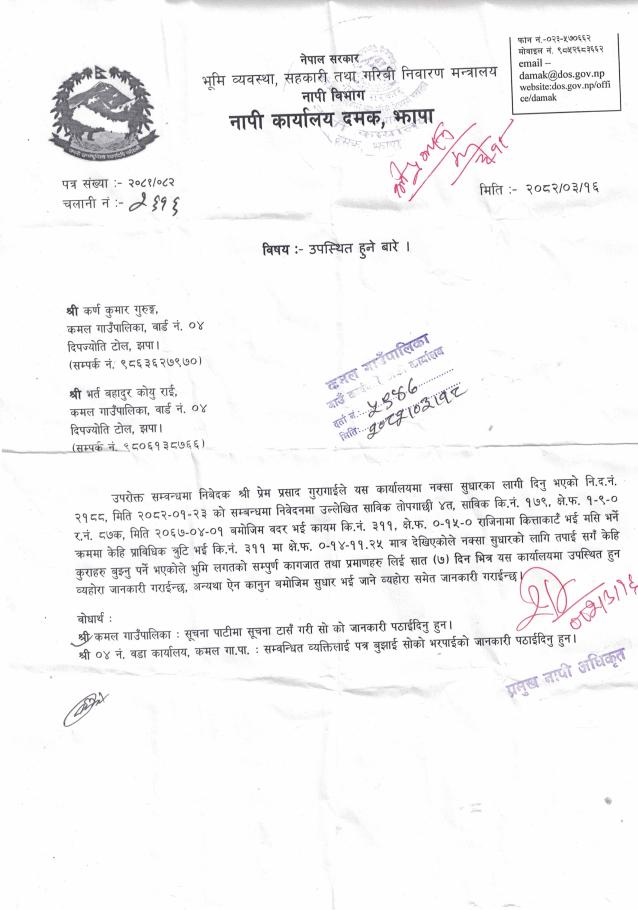 फोन नं.-०२३-५७०६६२
मोबाइल नं. ९८५२६८३६६२
email –
damak@dos.gov.np
website:dos.gov.np/offi
ce/damak
नेपाल सरकार
भूमि व्यवस्था, सहकारी तथा गरिबी निवारण मन्त्रालय
नापी विभाग
नापी कार्यालय दमक, झापा
दमक, झापा
पत्र संख्या :- २०८१/०८२
चलानी नं :- २६१६
मिति :- २०८२/०३/१६
विषय :- उपस्थित हुने बारे ।
श्री कर्ण कुमार गुरुङ्ग,
कमल गाउँपालिका, वार्ड नं. ०४
दिपज्योति टोल, झपा।
(सम्पर्क नं. ९८६३६२७९७०)
श्री भर्त बहादुर कोयु राई,
कमल गाउँपालिका, वार्ड नं. ०४
दिपज्योति टोल, झपा।
(सम्पर्क नं. ९८०६१३८७६६)
कमल गाउँपालिका
कार्यालय
दर्ता नं.: ५३७६
मिति: २०८२/०३/१८
उपरोक्त सम्बन्धमा निबेदक श्री प्रेम प्रसाद गुरागाईले यस कार्यालयमा नक्सा सुधारका लागी दिनु भएको नि.द.नं.
२१८८, मिति २०८२-०१-२३ को सम्बन्धमा निवेदनमा उल्लेखित साविक तोपगाछी ४त, साविक कि.नं. १७९, क्षे.फ. १-९-०
र.नं. ८७क, मिति २०६७-०४-०१ बमोजिम बदर भई कायम कि.नं. ३११, क्षे.फ. ०-१५-० राजिनामा कित्ताकार्ट भई मसि भर्ने
क्रममा केहि प्राविधिक त्रुटि भई कि.नं. ३११ मा क्षे.फ. ०-१४-११.२५ मात्र देखिएकोले नक्सा सुधारको लागि तपाई सगँ केहि
कुराहरु बुझ्नु पर्ने भएकोले भुमि लगतको सम्पुर्ण कागजात तथा प्रमाणहरु लिई सात (७) दिन भित्र यस कार्यालयमा उपस्थित हुन
व्यहोरा जानकारी गराईन्छ, अन्यथा ऐन कानुन बमोजिम सुधार भई जाने व्यहोरा समेत जानकारी गराईन्छ।
२०८२/३/१६
बोधार्थ :
श्री कमल गाउँपालिका : सूचना पाटीमा सूचना टाँसँ गरी सो को जानकारी पठाईदिनु हुन।
श्री ०४ नं. वडा कार्यालय, कमल गा.पा. : सम्बन्धित व्यक्तिलाई पत्र बुझाई सोको भरपाईको जानकारी पठाईदिनु हुन।
प्रमुख नापी अधिकृत